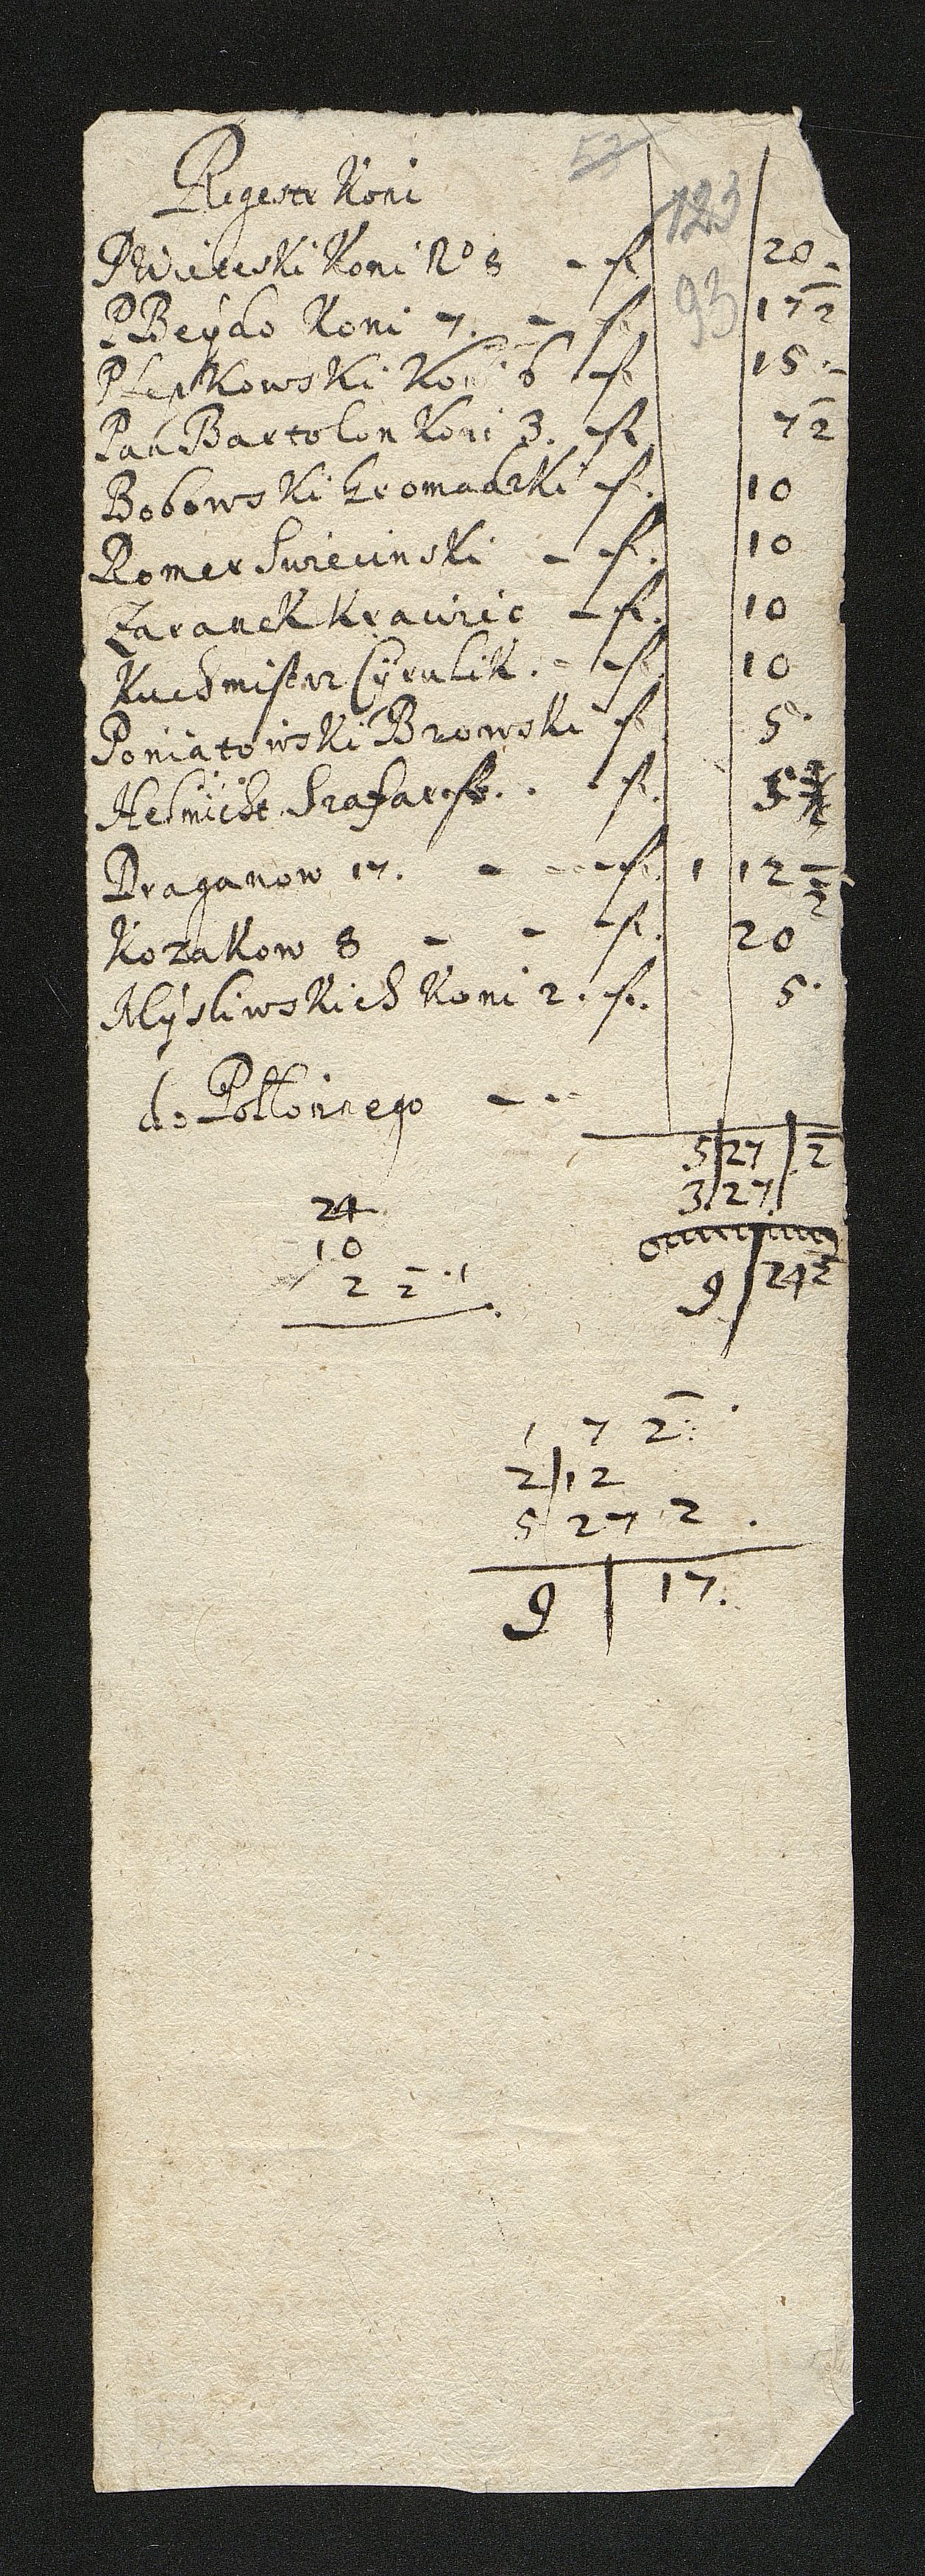 57
123
93
Regestr Koni
P Wieteski Koni No 8 - fl. 20 -
P Beydo Koni 7. - fl. 17 2
P Lepkowski Koni 6 fl. 15 -
Pan Bartolon Koni 3. fl. 7 2
Bobowski Gromadzki fl. 10
Romer Swiecinski - fl. 10
Zaranek Krawiec - fl. 10
Kuchmistrz Cyrulik. - fl. 10
Poniatowski Browski fl. 5.
Helmicht Szafarz. . fl. 5
Draganow 17. - - - fl. 1 12 2
Kozakow 8 - - fl. 20
Mysliwskich Koni 2. fl. 5.
do Połłonnego - -
5 27 2
3. 27.
9 24 2
24
10
2 2
1 7 2
2 12
5 27 2.
9 17.